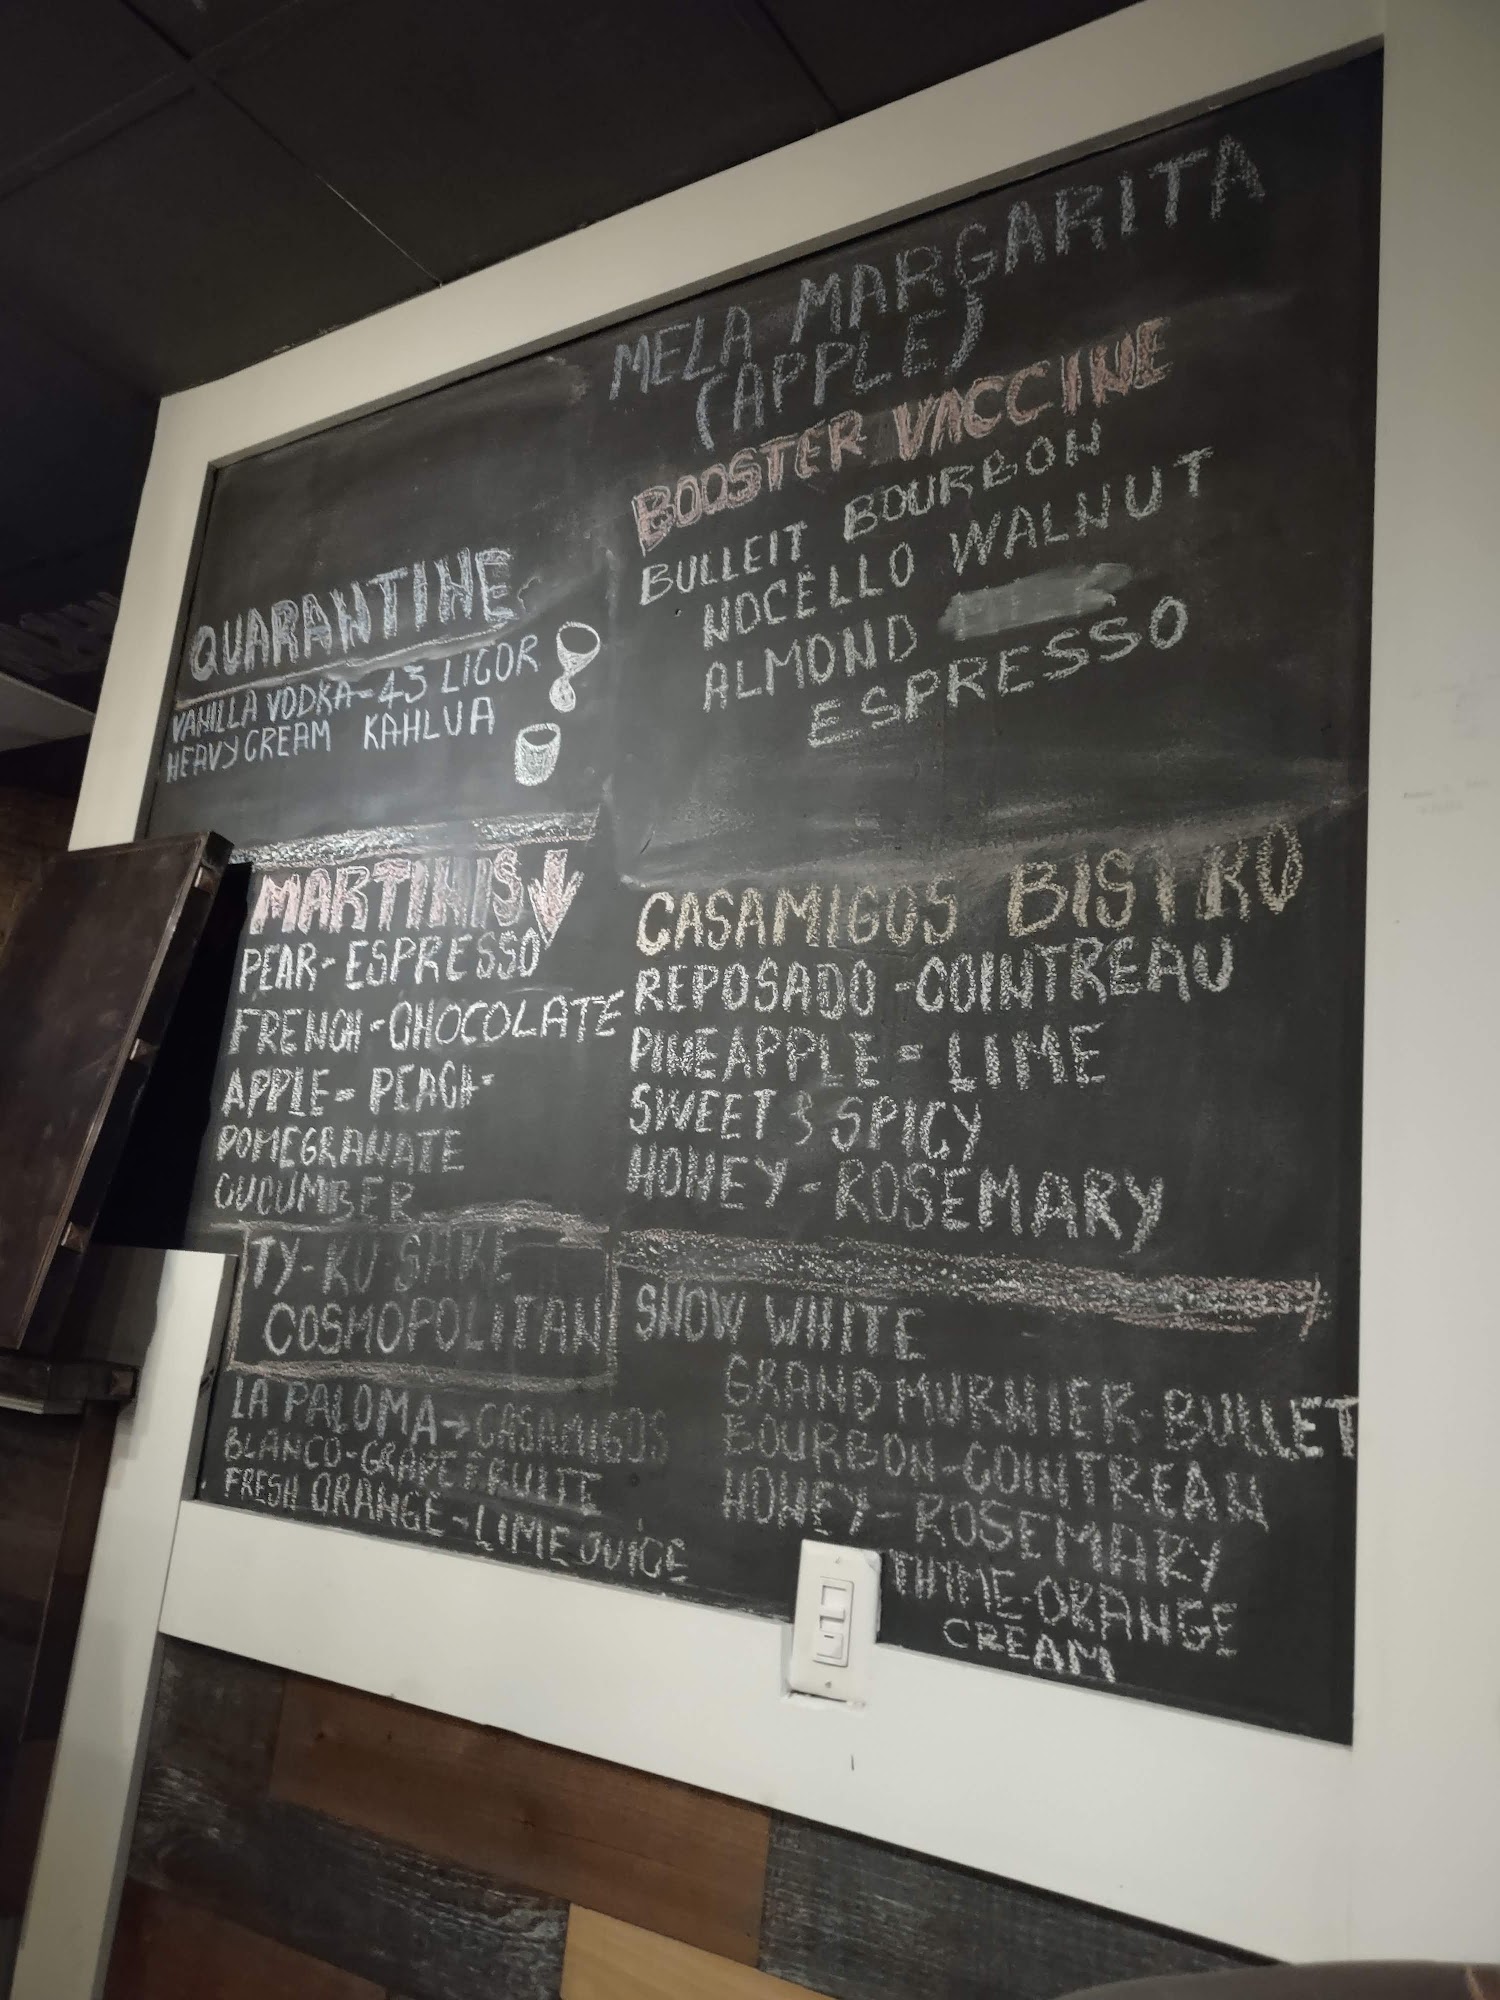 MELA MARGARITA
(APPLE)
BOOSTER VACCINE
BULLEIT BOURBON
NOCELLO WALNUT
ALMOND
ESPRESSO
QUARANTINE
VANILLA VODKA-43 LICOR
HEAVY CREAM KAHLUA
MARTINIS
PEAR-ESPRESSO
FRENCH-CHOCOLATE
APPLE-PEACH-
POMEGRANATE
CUCUMBER
TY-KU SAKE
COSMOPOLITAN
LA PALOMA→CASAMIGOS
BLANCO-GRAPEFRUITE
FRESH ORANGE-LIME JUICE
CASAMIGOS BISTRO
REPOSADO-COINTREAU
PINEAPPLE-LIME
SWEET & SPICY
HONEY-ROSEMARY
SNOW WHITE
GRAND MURNIER-BULLET
BOURBON-COINTREAU
HONEY-ROSEMARY
THYME-ORANGE
CREAM